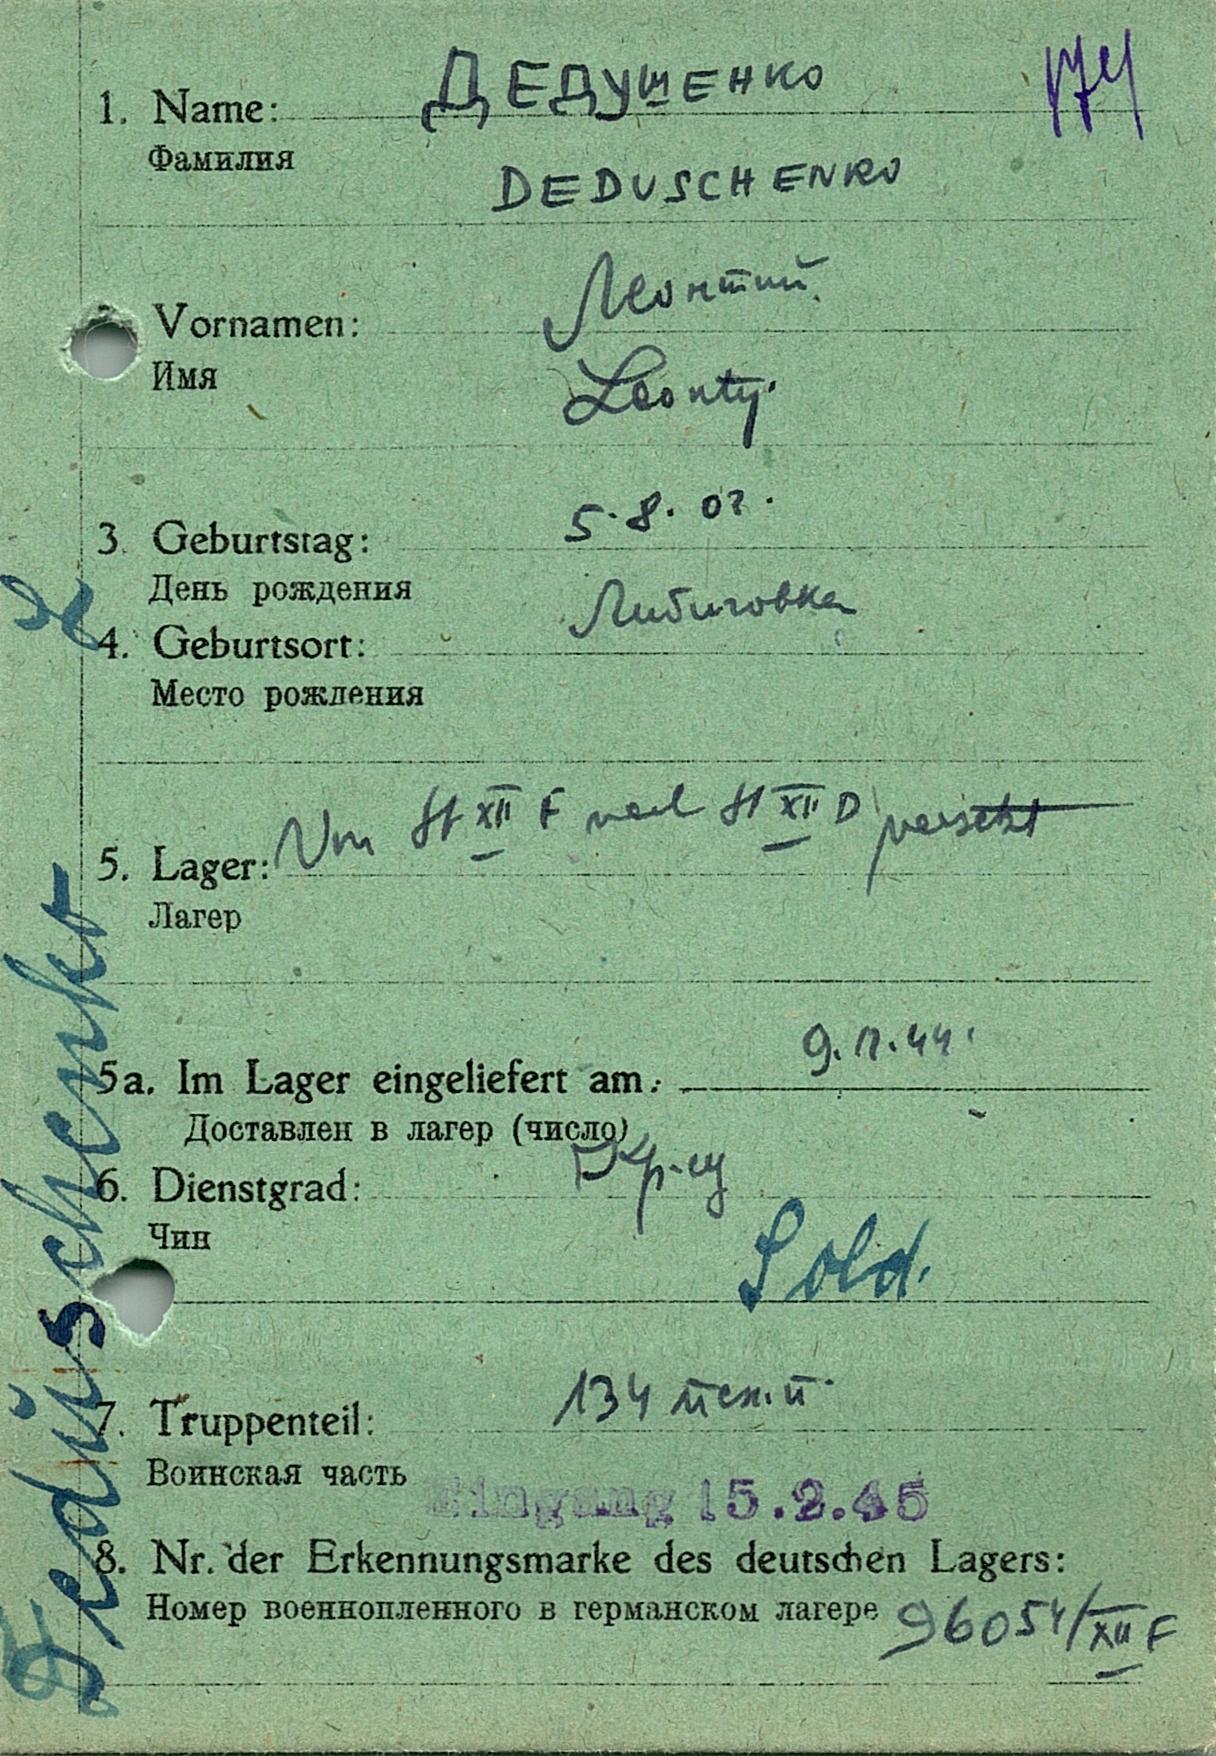 174
1. Name: ДЕДУШЕНКО
Фамилия
DEDUSCHENKO
Vornamen: Леонтий.
Имя
Leonty.
3. Geburtstag: 5.8.02.
День рождения
4. Geburtsort: Любиговка
Место рождения
5. Lager: Von St XII F nach St XII D versetzt
Лагерь
5a. Im Lager eingeliefert am: 9.11.44.
Доставлен в лагер (число)
6. Dienstgrad: Кр-ец
Чин
Sold.
7. Truppenteil: 134 пех.п.
Воинская часть
Eingang 15.2.45
8. Nr. der Erkennungsmarke des deutschen Lagers:
Номер военнопленного в германском лагере 96054/XII F
Deduschenko L